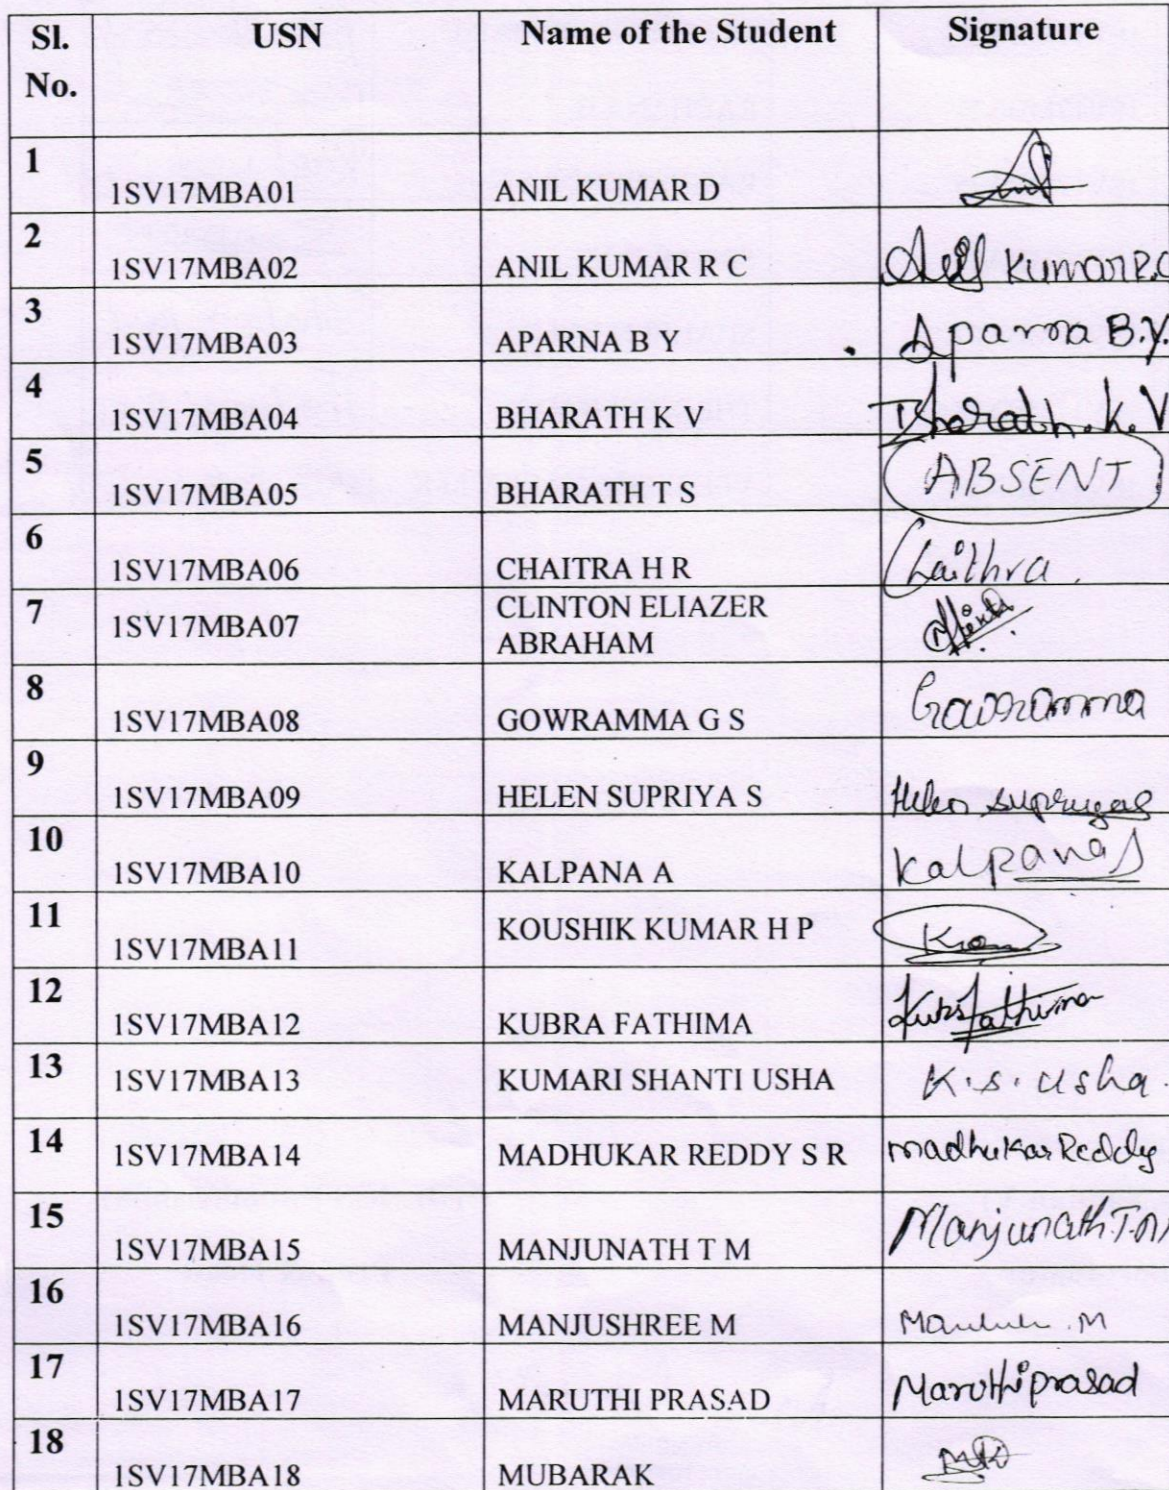 Sl. No. USN Name of the Student Signature
1 1SV17MBA01 ANIL KUMAR D
2 1SV17MBA02 ANIL KUMAR R C Anil Kumar R.C
3 1SV17MBA03 APARNA B Y Aparna B.Y.
4 1SV17MBA04 BHARATH K V Bharath.K.V
5 1SV17MBA05 BHARATH T S ABSENT
6 1SV17MBA06 CHAITRA H R Chaithra.
7 1SV17MBA07 CLINTON ELIAZER
ABRAHAM
8 1SV17MBA08 GOWRAMMA G S Gowramma
9 1SV17MBA09 HELEN SUPRIYA S Helen Supriya S
10 1SV17MBA10 KALPANA A Kalpana
11 1SV17MBA11 KOUSHIK KUMAR H P
12 1SV17MBA12 KUBRA FATHIMA Fathima
13 1SV17MBA13 KUMARI SHANTI USHA K.S. Usha.
14 1SV17MBA14 MADHUKAR REDDY S R madhukar Reddy
15 1SV17MBA15 MANJUNATH T M Manjunath.T.M
16 1SV17MBA16 MANJUSHREE M
17 1SV17MBA17 MARUTHI PRASAD Maruthi prasad
18 1SV17MBA18 MUBARAK